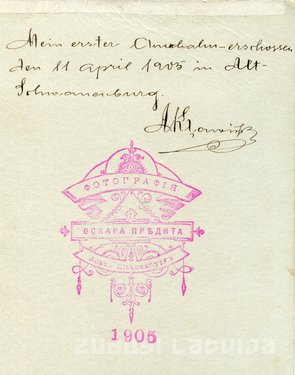 Mein erster Auerhahn erschossen
den 11 April 1905 in Alt-
Schwanenburg.
ФОТОГРАФІЯ
ОСКАРА
1905
zudusi latvija